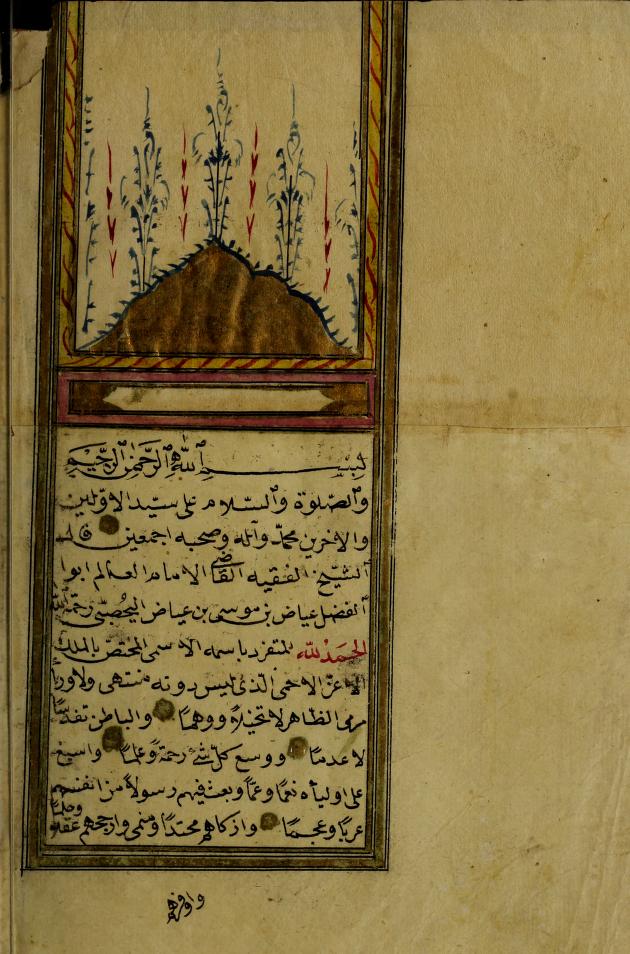 بسم الله الرحمن الرحيم
والصلوة والسلام على سيد الاولين
والاخرين محمد وآله وصحبه اجمعين قال
الشيخ الفقيه القاضى الامام العالم ابوا
الفضل عياض بن موسى بن عياض اليحصبى رحمة الله
الحمد لله المتفرد باسمه الاسمى المختص بالملك
الاعز الاحمى الذى ليس دونه منتهى ولا وراه
مرمى الظاهر لا تخيلا ووهما والباطن تقدسا
لا عدما ووسع كل شئ رحمة وعلما واسبغ
على اوليآه نعما وعما وبعث فيهم رسولا من انفسهم
عربا وعجما وازكاهم محتدا ومنمى وارجحهم عقلا وحلما
واوفرهم